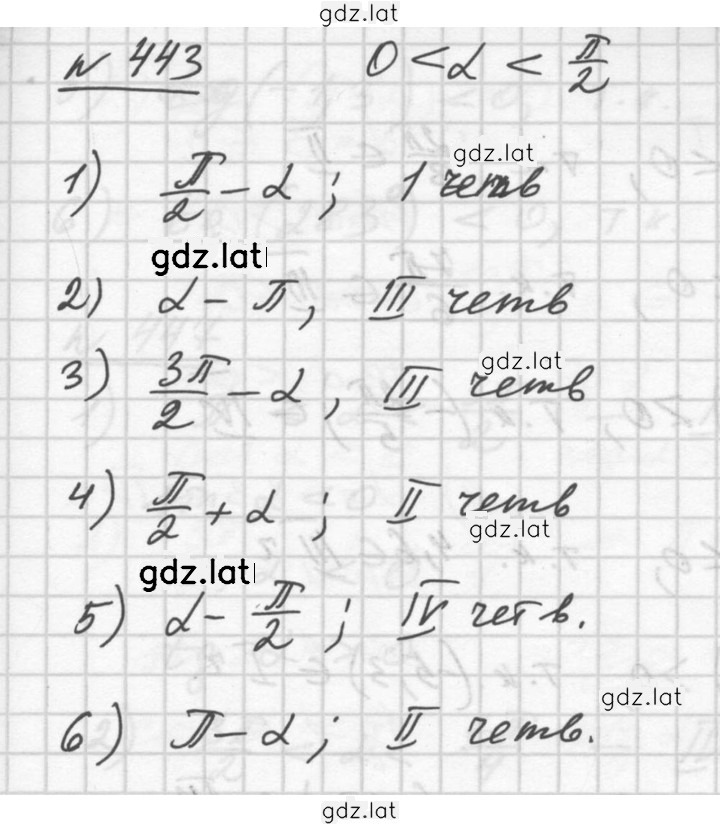 gdz.lat
№ 443 0 < α < π/2
gdz.lat
1) π/2 - α ; 1 четв
gdz.lat
2) α - π, III четв
gdz.lat
3) 3π/2 - α, III четв
4) π/2 + α ; II четв
gdz.lat
gdz.lat
5) α - π/2 ; IV четв.
gdz.lat
6) π - α ; II четв.
gdz.lat